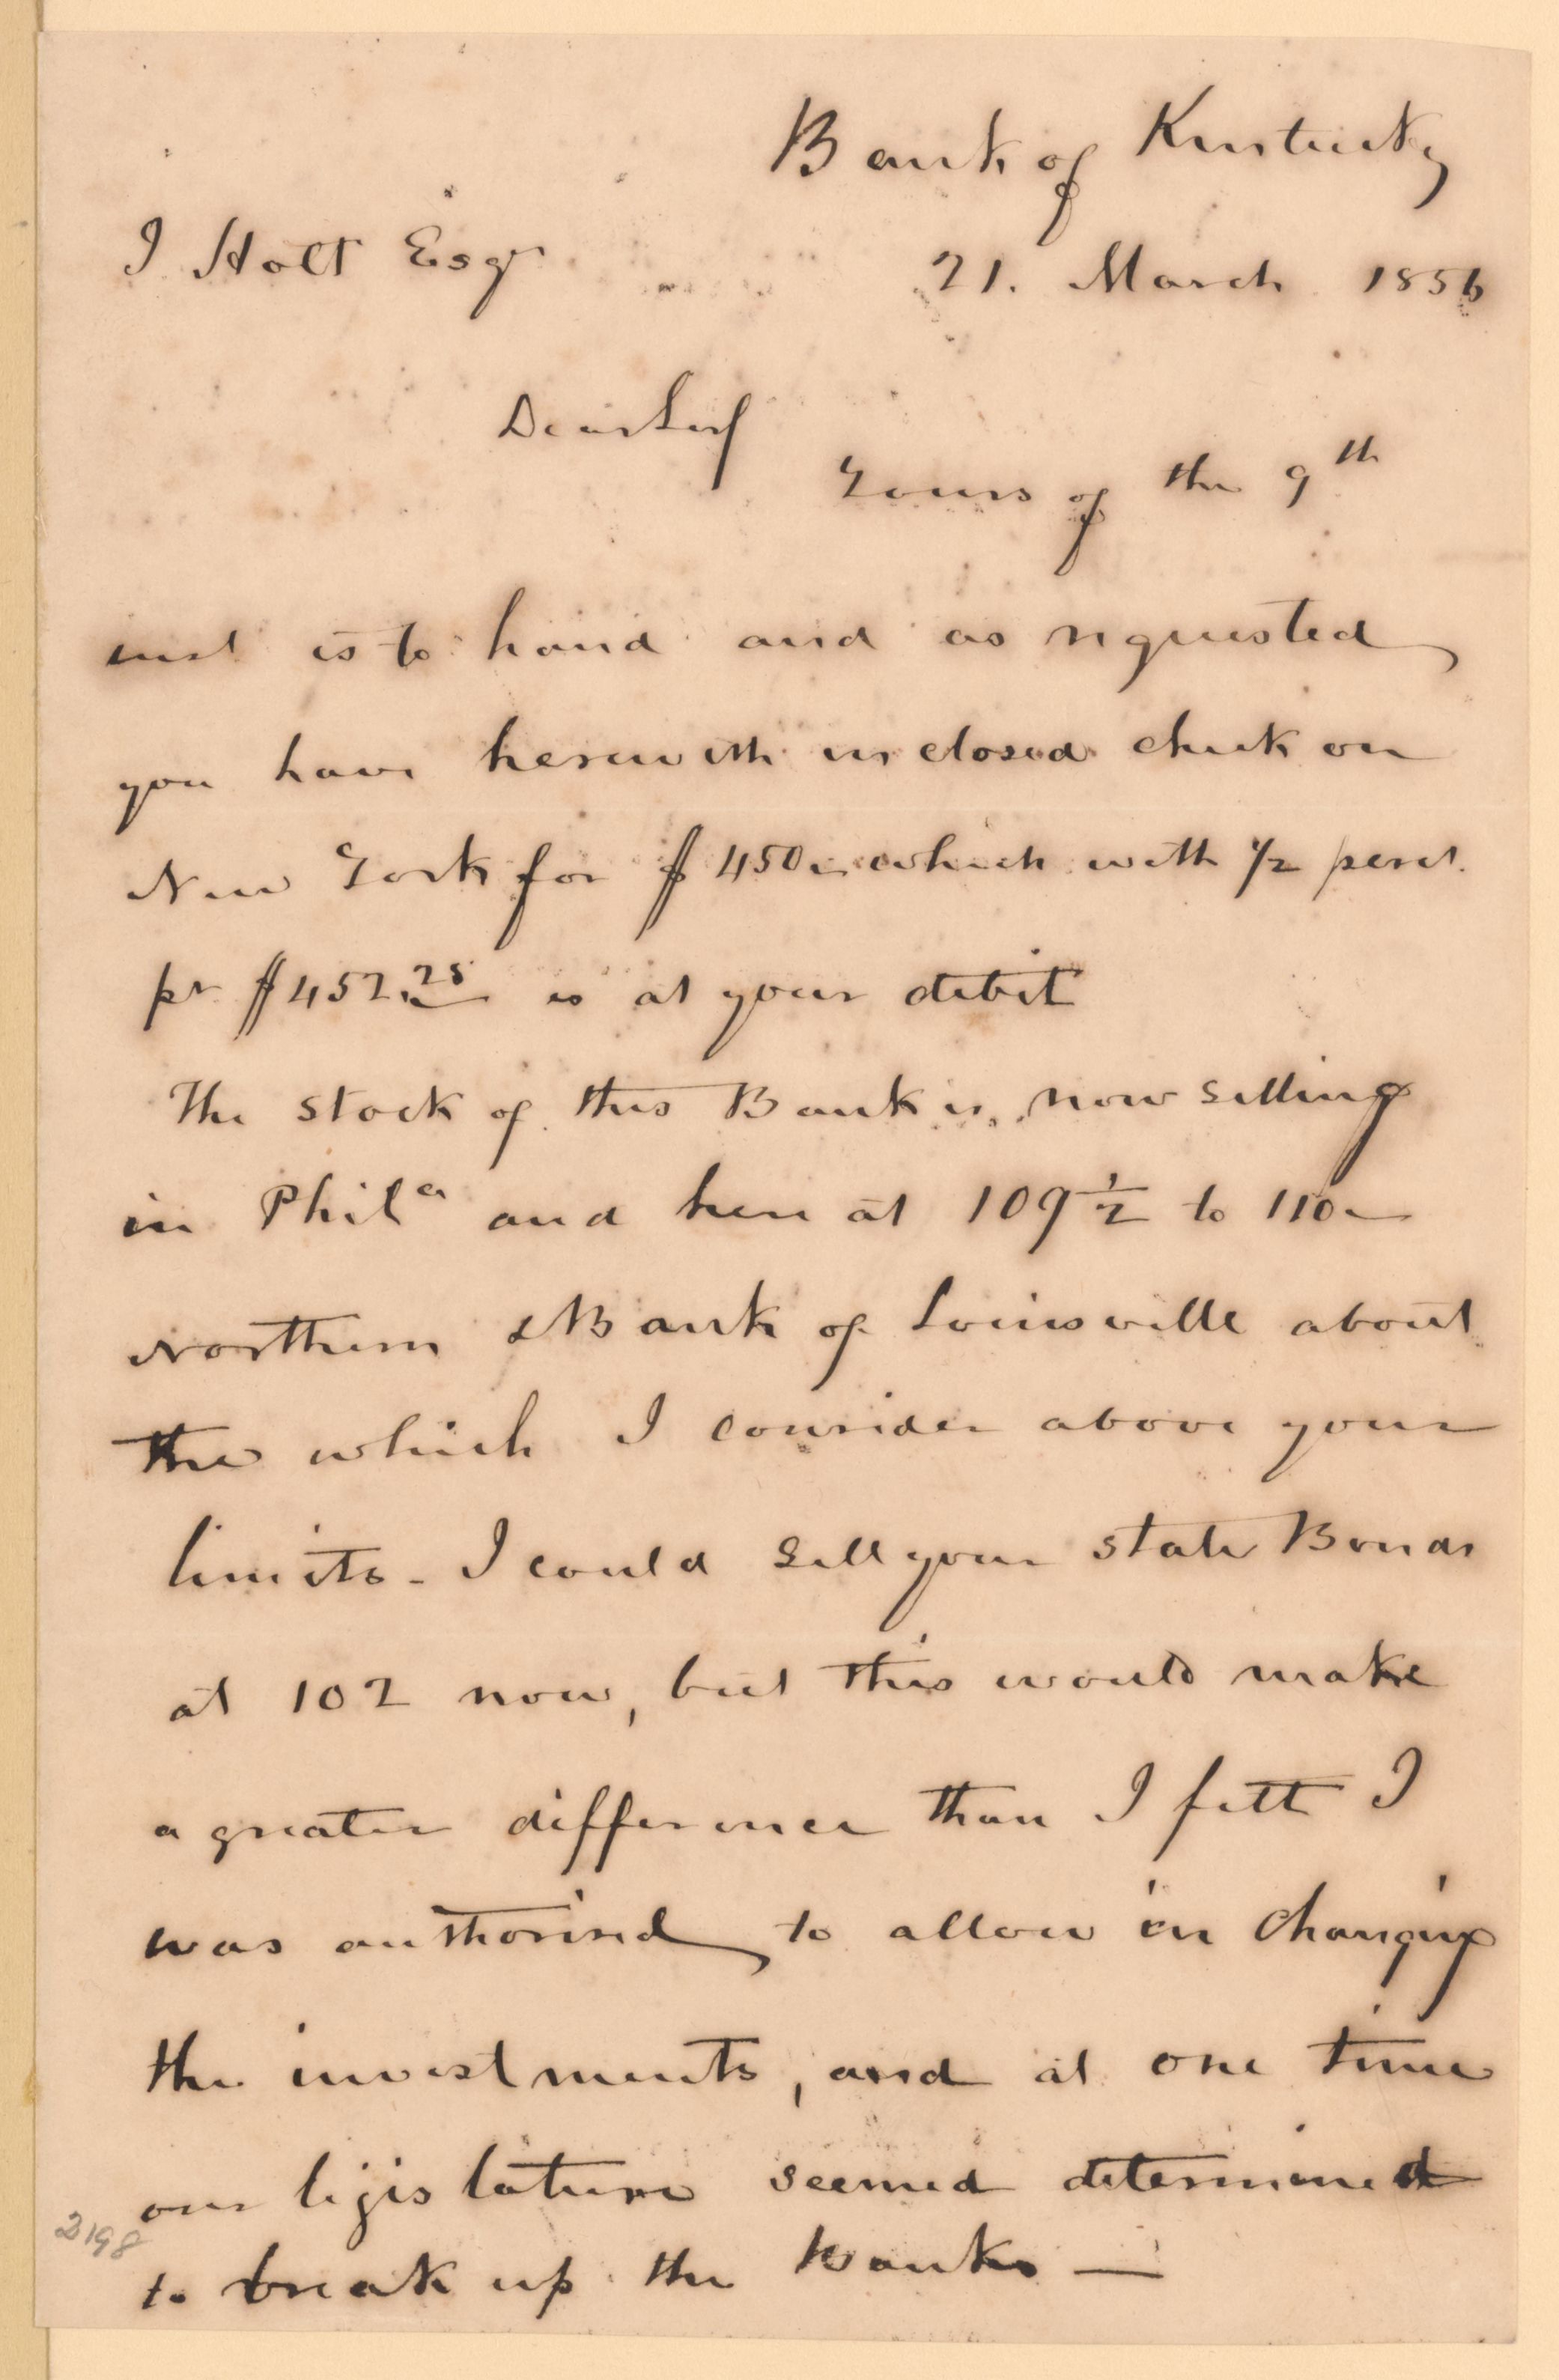 Bank of Kentucky
J Holt Esqr
21. March 1856
Dear Sir
Yours of the 9th
inst is to hand and as requested
you have herewith inclosed check on
New York for $450 which with 1/2 perct.
pr $452.25 is at your debit
The stock of this Bank is now selling
in Phila and here at 109 1/2 to 110
Northern & Bank of Louisville about
the which I consider above your
limits - I could sell your state Bonds
at 102 now, but this would make
a greater difference than I felt I
was authorised to allow in changing
the investments, and at one time
our legislature seemed determined
to break up the banks —
2198